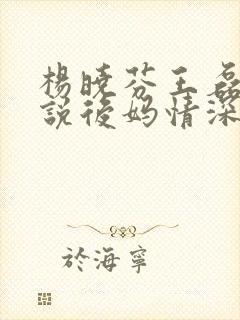 楊曉芬王磊
說後媽情深
於海寧